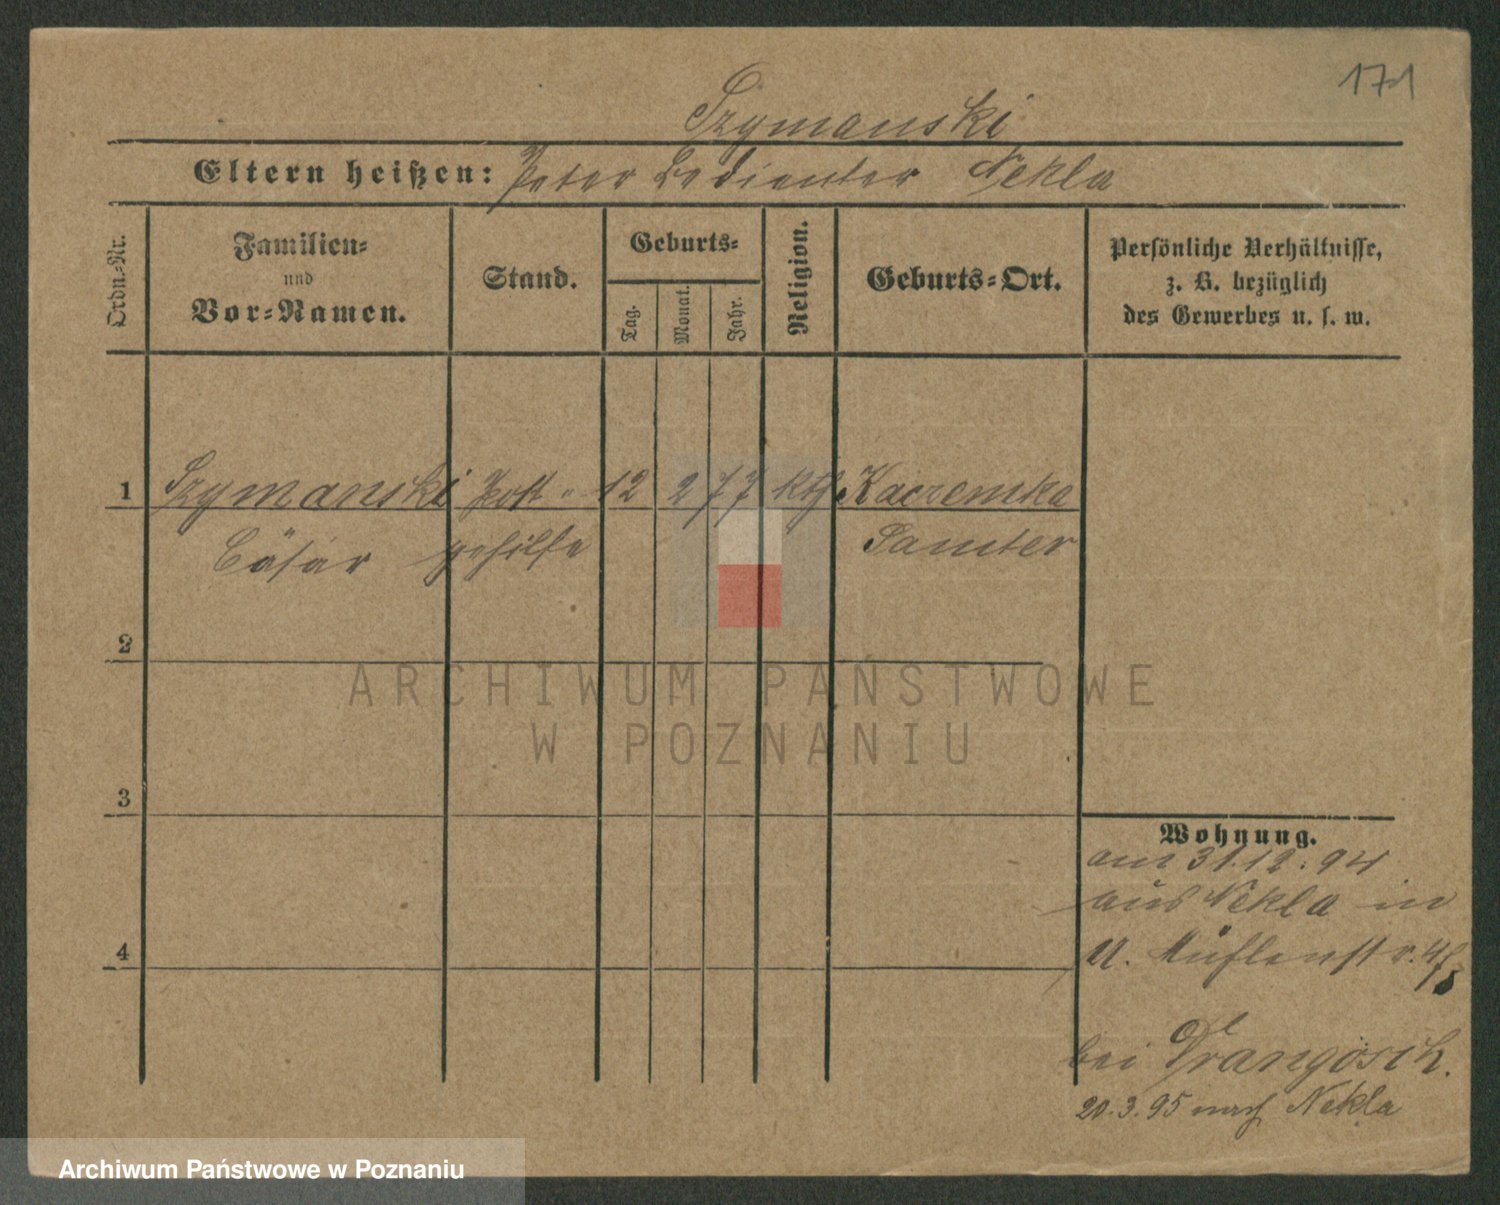 171
Szymanski
Eltern heißen: Peter Bedienter Nekla
Ordn.-Nr.
Familien-
und
Vor-Namen.
Stand.
Geburts-
Tag.
Monat.
Jahr.
Religion.
Geburts-Ort.
Persönliche Verhältnisse,
z. B. bezüglich
des Gewerbes u. s. w.
1 Szymanski Post- 12 2 77 kth Kaczemka
Cäsar gehilfe Samter
2
ARCHIWUM PAŃSTWOWE
W POZNANIU
3
Wohnung.
am 31.12.94
aus Nekla in
U. Mühlenstr. 4/5
4
bei Drangosch.
20.3.95 nach Nekla
Archiwum Państwowe w Poznaniu